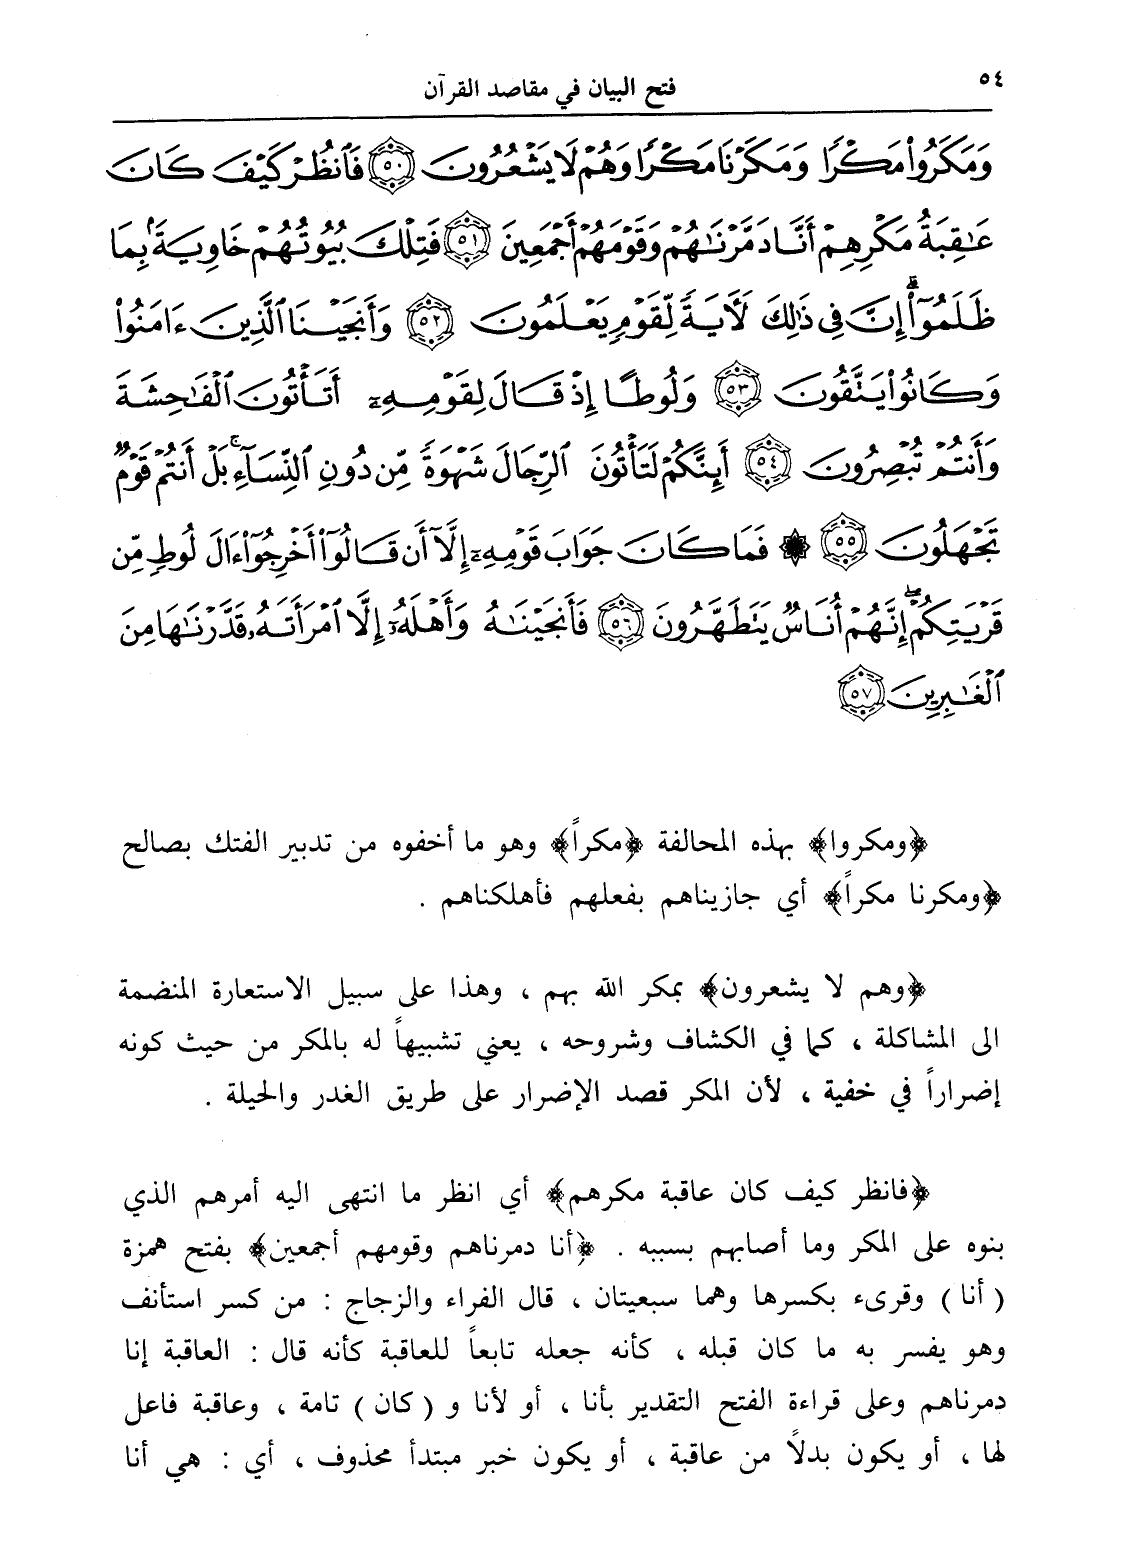 ٥٤
فتح البيان في مقاصد القرآن
وَمَكَرُوا۟ مَكْرًا وَمَكَرْنَا مَكْرًا وَهُمْ لَا يَشْعُرُونَ ٥٠ فَٱنظُرْ كَيْفَ كَانَ
عَٰقِبَةُ مَكْرِهِمْ أَنَّا دَمَّرْنَٰهُمْ وَقَوْمَهُمْ أَجْمَعِينَ ٥١ فَتِلْكَ بُيُوتُهُمْ خَاوِيَةًۢ بِمَا
ظَلَمُوٓا۟ۗ إِنَّ فِى ذَٰلِكَ لَءَايَةً لِّقَوْمٍ يَعْلَمُونَ ٥٢ وَأَنجَيْنَا ٱلَّذِينَ ءَامَنُوا۟
وَكَانُوا۟ يَتَّقُونَ ٥٣ وَلُوطًا إِذْ قَالَ لِقَوْمِهِۦٓ أَتَأْتُونَ ٱلْفَٰحِشَةَ
وَأَنتُمْ تُبْصِرُونَ ٥٤ أَئِنَّكُمْ لَتَأْتُونَ ٱلرِّجَالَ شَهْوَةً مِّن دُونِ ٱلنِّسَآءِۚ بَلْ أَنتُمْ قَوْمٌ
تَجْهَلُونَ ٥٥ ۞ فَمَا كَانَ جَوَابَ قَوْمِهِۦٓ إِلَّآ أَن قَالُوٓا۟ أَخْرِجُوٓا۟ ءَالَ لُوطٍ مِّن
قَرْيَتِكُمْۖ إِنَّهُمْ أُنَاسٌ يَتَطَهَّرُونَ ٥٦ فَأَنجَيْنَٰهُ وَأَهْلَهُۥٓ إِلَّا ٱمْرَأَتَهُۥ قَدَّرْنَٰهَا مِنَ
ٱلْغَٰبِرِينَ ٥٧
﴿ومكروا﴾ بهذه المحالفة ﴿مكراً﴾ وهو ما أخفوه من تدبير الفتك بصالح
﴿ومكرنا مكراً﴾ أي جازيناهم بفعلهم فأهلكناهم .
﴿وهم لا يشعرون﴾ بمكر الله بهم ، وهذا على سبيل الاستعارة المنضمة
الى المشاكلة ، كما في الكشاف وشروحه ، يعني تشبيهاً له بالمكر من حيث كونه
إضراراً في خفية ، لأن المكر قصد الإضرار على طريق الغدر والحيلة .
﴿فانظر كيف كان عاقبة مكرهم﴾ أي انظر ما انتهى اليه أمرهم الذي
بنوه على المكر وما أصابهم بسببه . ﴿أنا دمرناهم وقومهم أجمعين﴾ بفتح همزة
( أنا ) وقرىء بكسرها وهما سبعيتان ، قال الفراء والزجاج : من كسر استأنف
وهو يفسر به ما كان قبله ، كأنه جعله تابعاً للعاقبة كأنه قال : العاقبة إنا
دمرناهم وعلى قراءة الفتح التقدير بأنا ، أو لأنا و ( كان ) تامة ، وعاقبة فاعل
لها ، أو يكون بدلاً من عاقبة ، أو يكون خبر مبتدأ محذوف ، أي : هي أنا